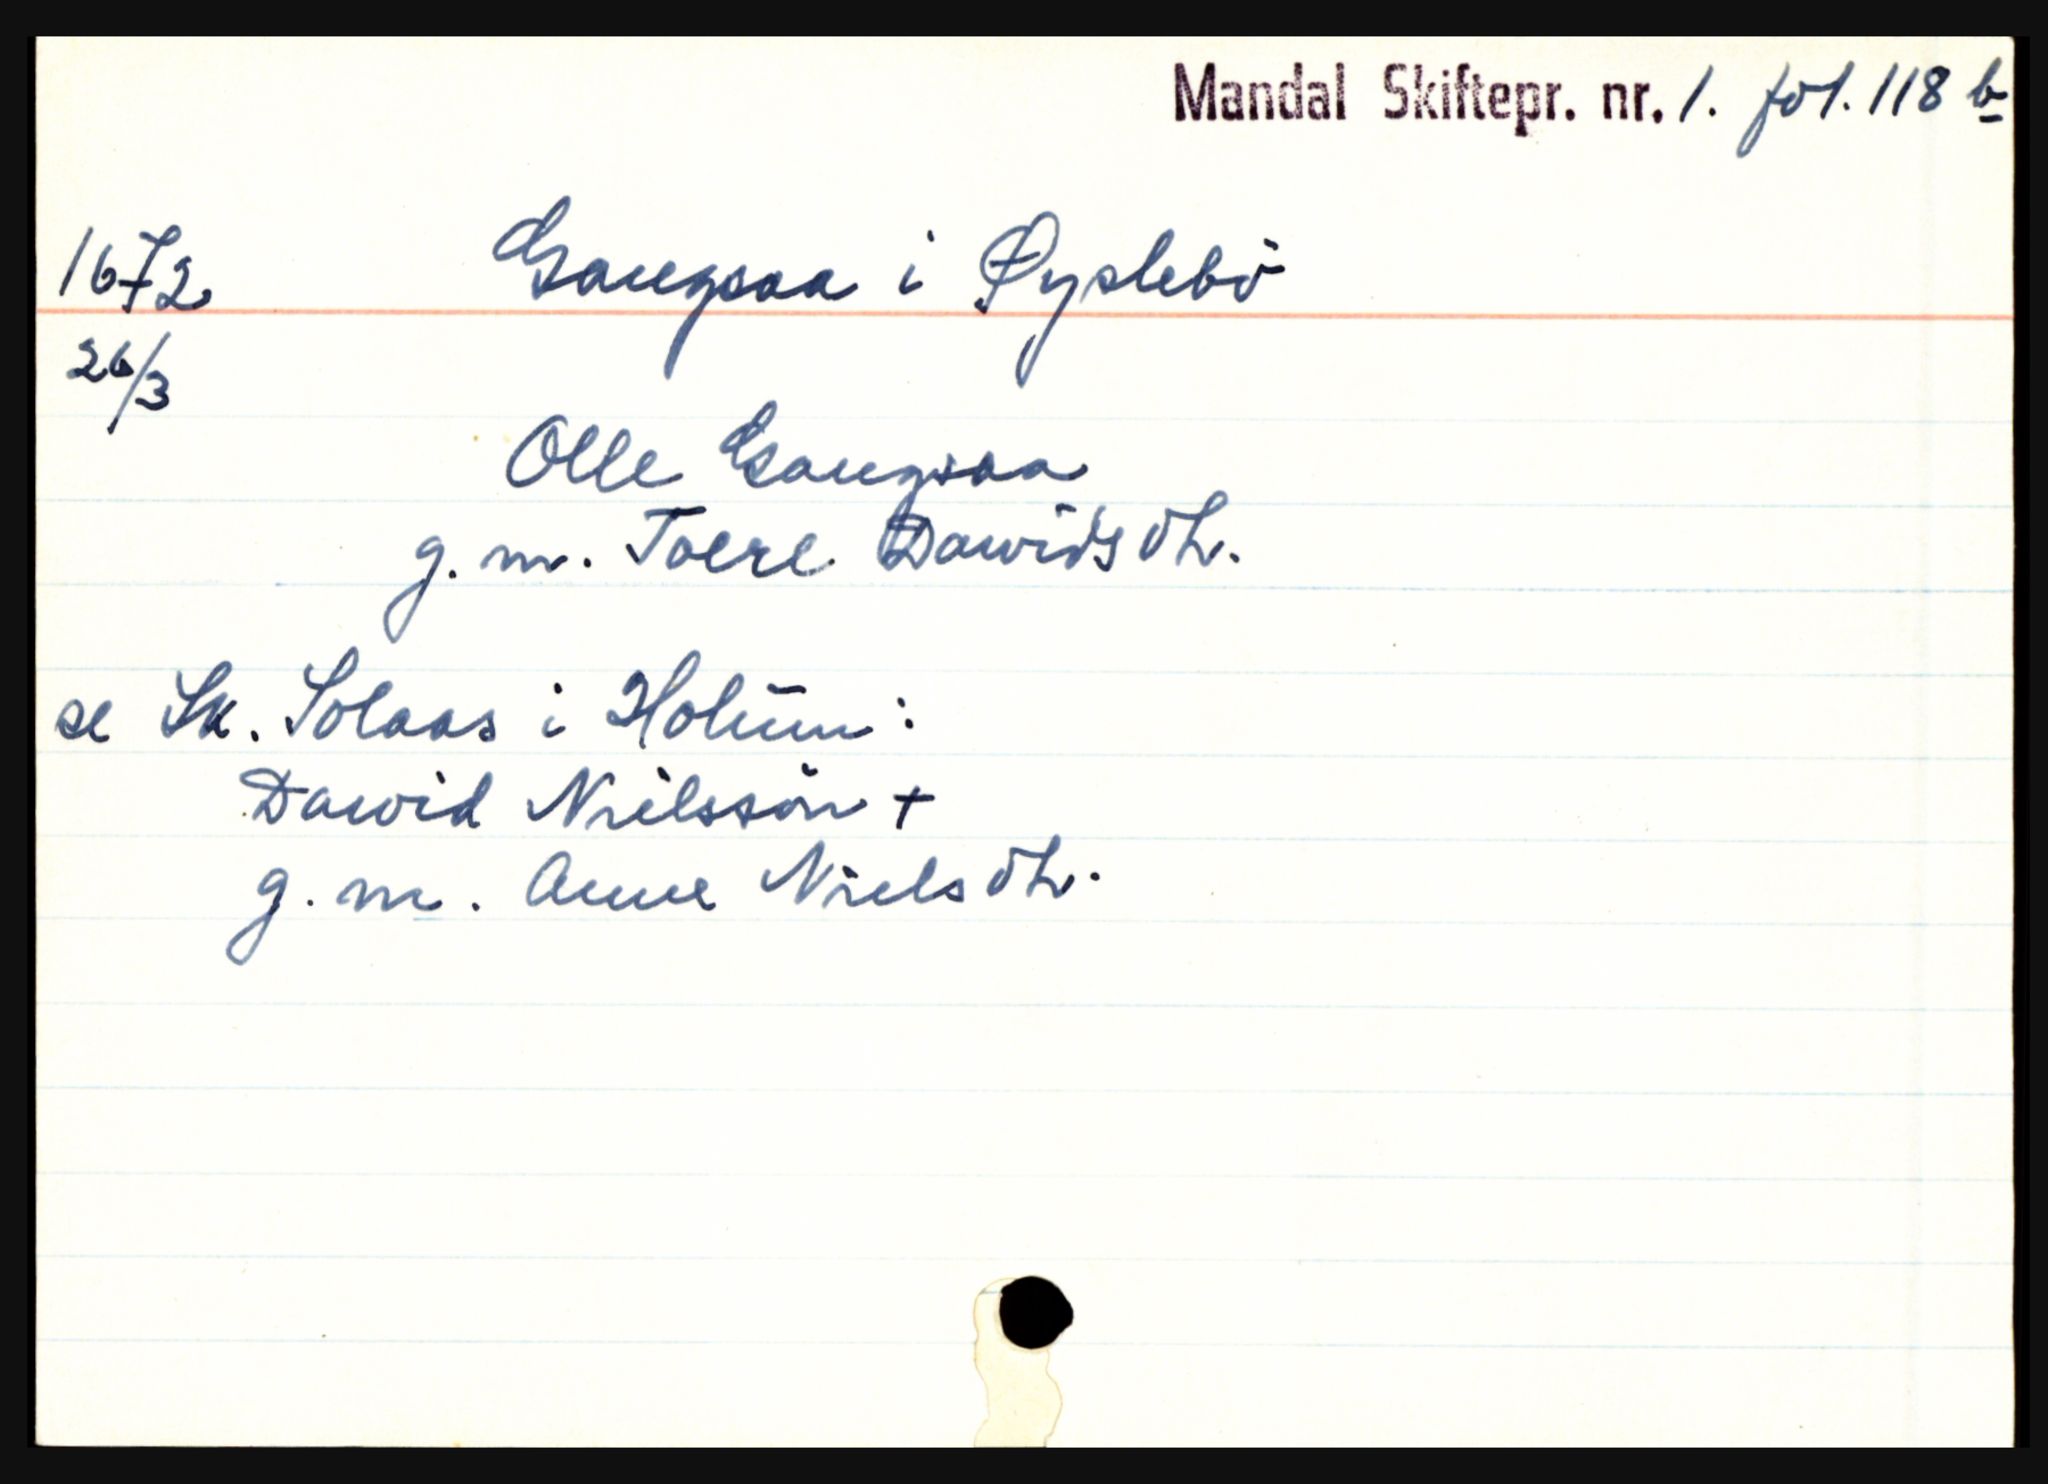 Mandal Skiftepr. nr. 1. fol. 118 b
1672 Gangsaa i Øyslebö
26/3
Olle Gangsaa
g. m. Toere Dawids dtr.
se Sk. Solaas i Holum:
Dawid Nielssön +
g. m. Anne Niels dtr.